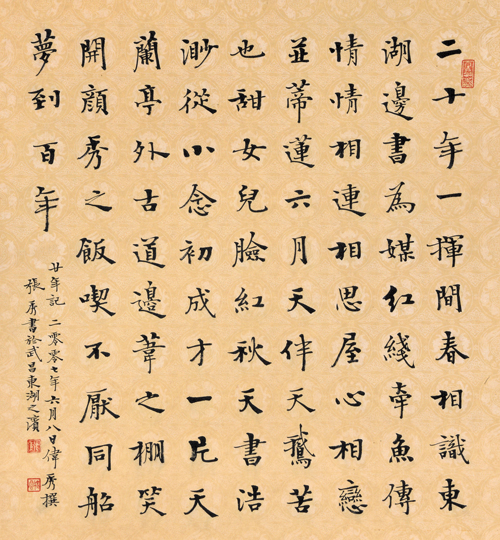 二十年一揮間春相識東
湖邊書為媒紅綫牽魚傳
情情相連相思屋心相戀
並蒂蓮六月天伴天鵝苦
也甜女兒臉紅秋天書浩
渺從小念初成才一片天
蘭亭外古道邊葦之棚笑
開顏秀之飯喫不厭同船
夢到百年
廿年記 二零零七年六月八日偉秀撰
張秀書於武昌東湖之濱